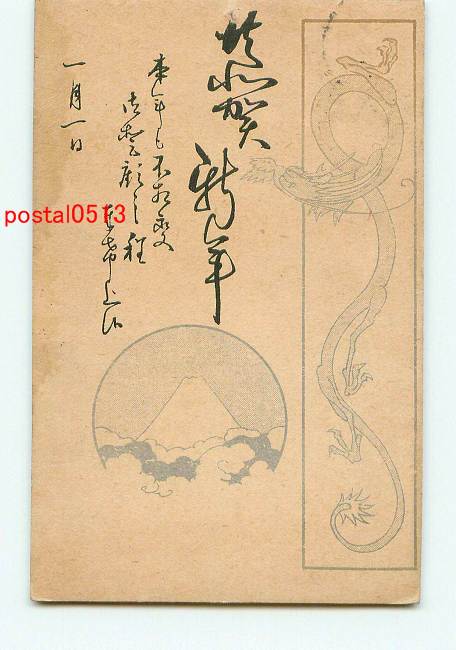 恭賀新年
本年も不相変
御愛顧之程
奉希上候
一月一日
postal0513